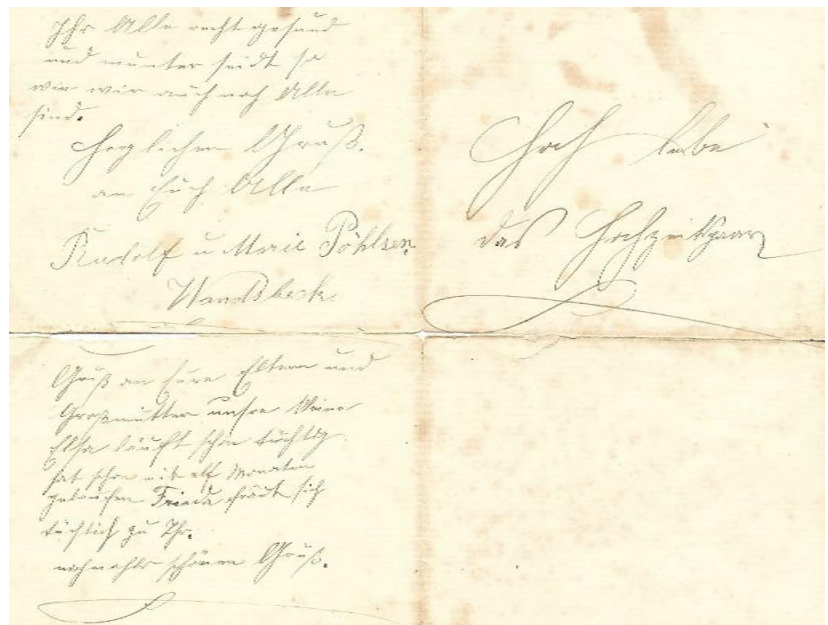 Ihr Alle recht gesund
und munter seidt so
wie wir auch noch Alle
sind.
Herzlichen Gruß.
an Euch Alle
Rudolf u Marie Pöhlsen.
Wandsbeck.
Hoch lebe
das Hochzeitspaar
Gruß an Eure Eltern und
Großmutter unsre kleine
Elsa läuft schon tüchtig
hat schon mit elf Monaten
gelaufen Frieda sich
tüchtich zu Ihr.
nochmahls schönen Gruß.